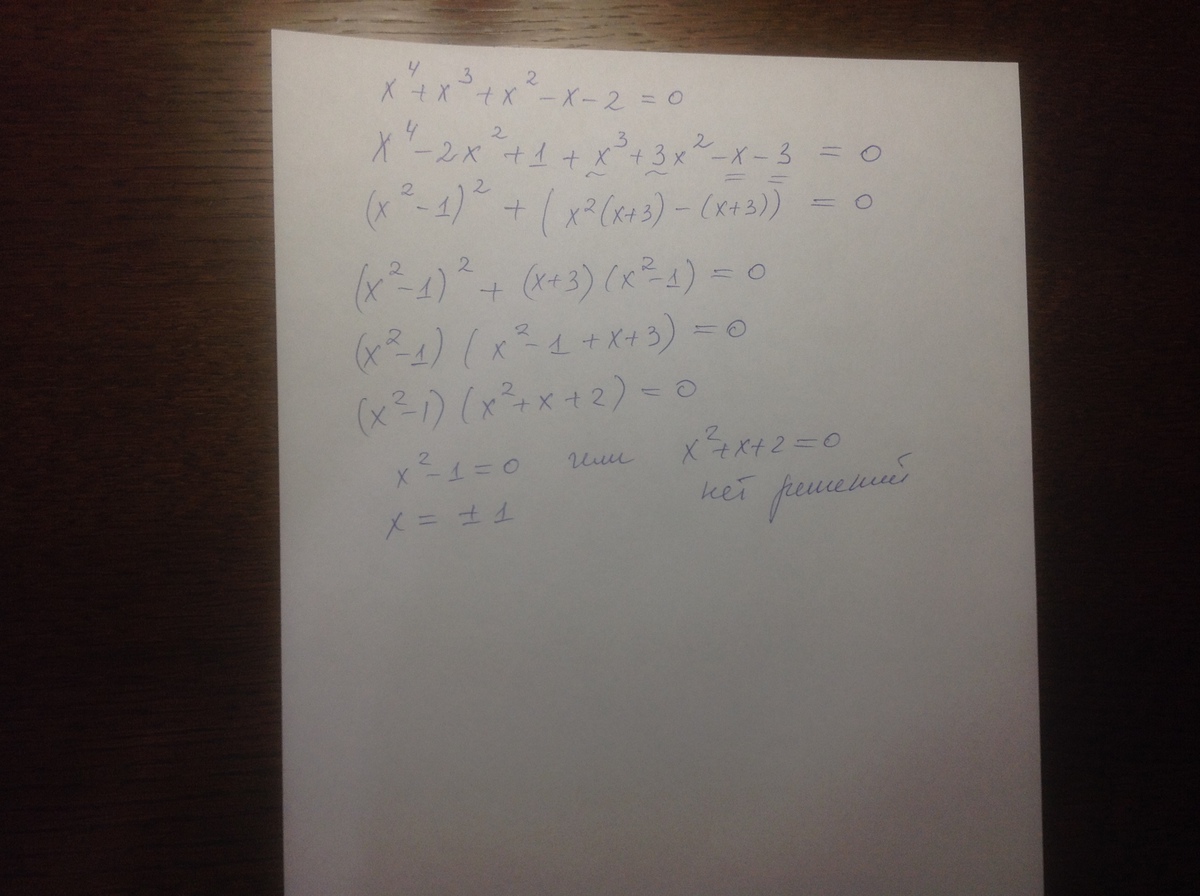 x⁴ + x³ + x² - x - 2 = 0
x⁴ - 2x² + 1 + x³ + 3x² - x - 3 = 0
(x² - 1)² + (x²(x+3) - (x+3)) = 0
(x² - 1)² + (x+3)(x² - 1) = 0
(x² - 1)(x² - 1 + x + 3) = 0
(x² - 1)(x² + x + 2) = 0
x² - 1 = 0 или x² + x + 2 = 0
x = ± 1 нет решений